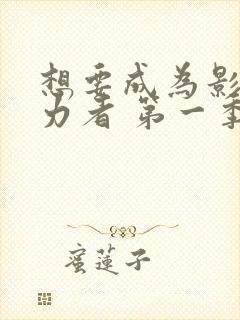 想要成為影
力者 第一季
蜜蓮子